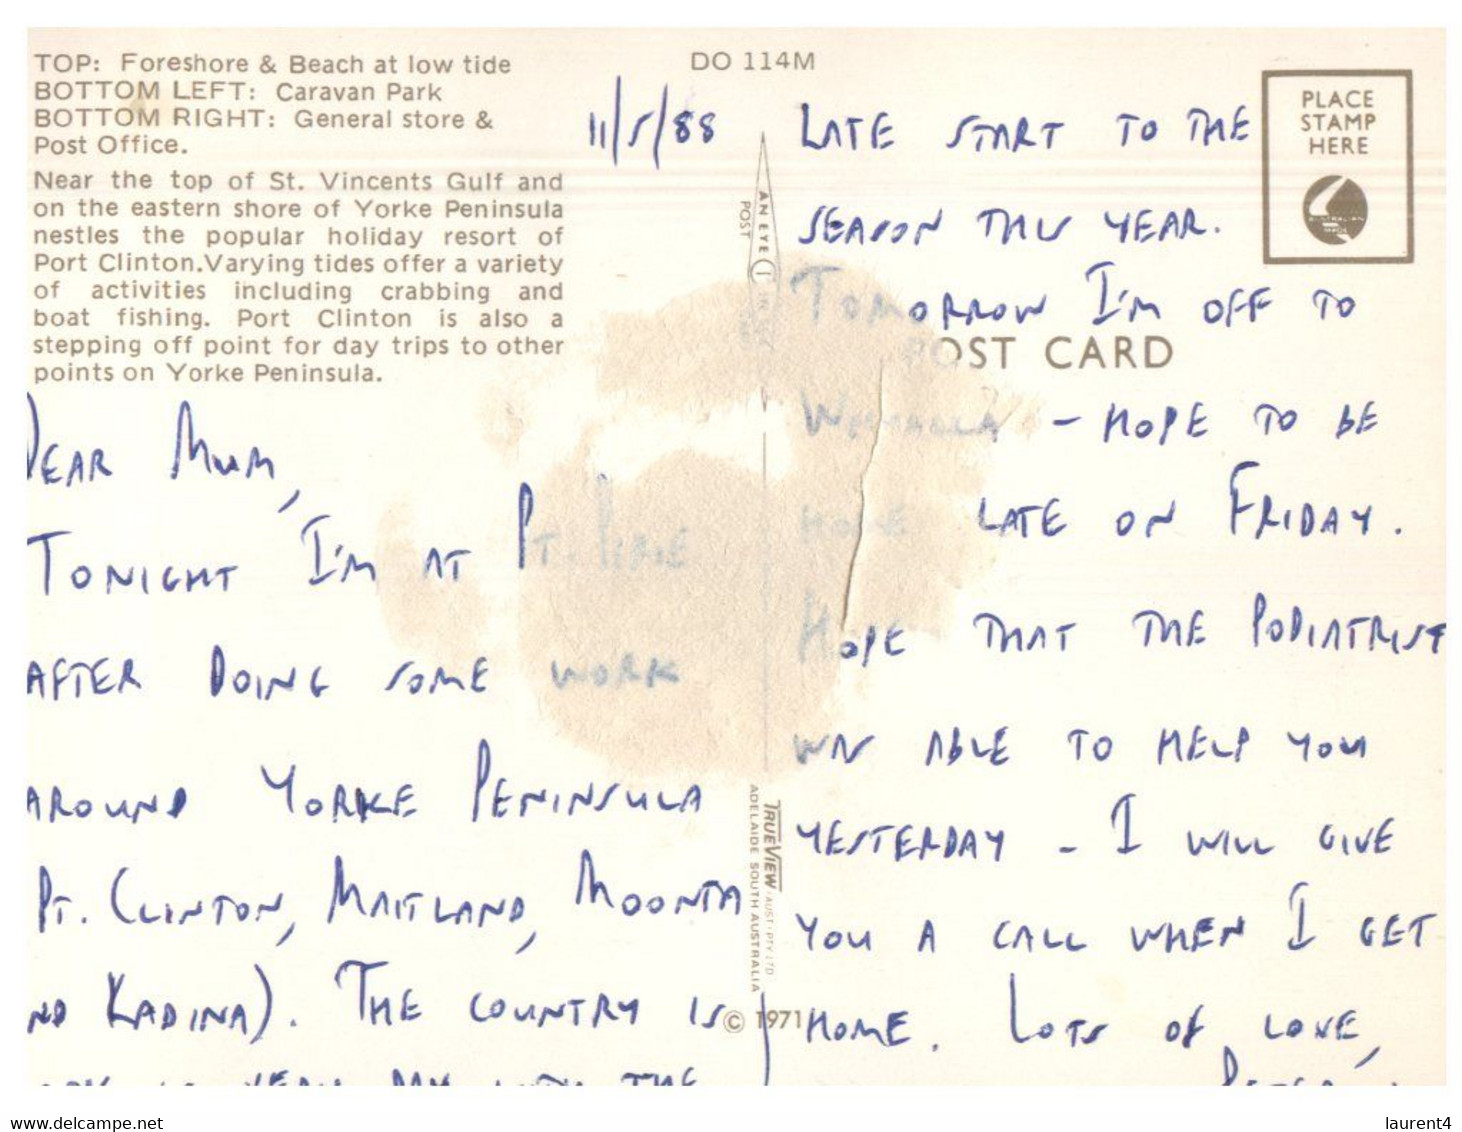 TOP: Foreshore & Beach at low tide
BOTTOM LEFT: Caravan Park
BOTTOM RIGHT: General store &
Post Office.
Near the top of St. Vincents Gulf and
on the eastern shore of Yorke Peninsula
nestles the popular holiday resort of
Port Clinton.Varying tides offer a variety
of activities including crabbing and
boat fishing. Port Clinton is also a
stepping off point for day trips to other
points on Yorke Peninsula.
DO 114M
PLACE
STAMP
HERE
POST CARD
AN EYE
POST
TRUEVIEW AUST. PTY. LTD
ADELAIDE SOUTH AUSTRALIA
© 1971
11/5/88
DEAR MUM,
TONIGHT I'M AT PT. PIRIE
AFTER DOING SOME WORK
AROUND YORKE PENINSULA
PT. CLINTON, MAITLAND, MOONTA
ND KADINA). THE COUNTRY IS
VERY DRY WITH THE
LATE START TO THE
SEASON THIS YEAR.
TOMORROW I'M OFF TO
WHYALLA - HOPE TO BE
HOME LATE ON FRIDAY.
HOPE THAT THE PODIATRIST
WAS ABLE TO HELP YOU
YESTERDAY - I WILL GIVE
YOU A CALL WHEN I GET
HOME. LOTS OF LOVE,
PETER
www.delcampe.net
laurent4